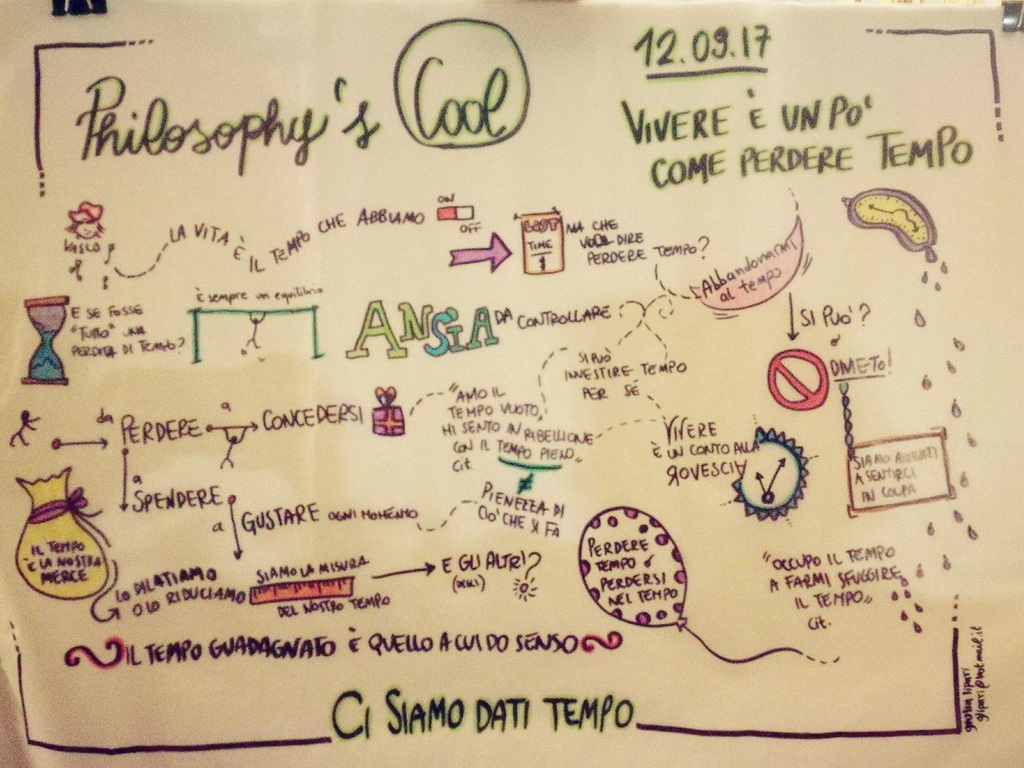 Philosophy's Cool
12.09.17
VIVERE È UN PO'
COME PERDERE TEMPO
VASCO
LA VITA È
IL TEMPO CHE ABBIAMO
ON
OFF
LOST
TIME
MA CHE
VUOL DIRE
PERDERE TEMPO?
Abbandonarmi
al tempo
SI PUO'?
E SE FOSSE
"TUTTO" UNA
PERDITA DI TEMPO?
È sempre un equilibrio
ANSIA DA CONTROLLARE
SI PUÒ
INVESTIRE TEMPO
PER SÉ
DIVIETO!
SIAMO ABITUATI
A SENTIRCI
IN COLPA
da PERDERE a CONCEDERSI
"AMO IL
TEMPO VUOTO,
MI SENTO IN RIBELLIONE
CON IL TEMPO PIENO"
cit.
VIVERE
È UN CONTO ALLA
ROVESCIA
a
SPENDERE
a GUSTARE OGNI MOMENTO
PIENEZZA DI
CIO' CHE SI FA
IL TEMPO
È LA NOSTRA
MERCE
LO DILATIAMO
O LO RIDUCIAMO
SIAMO LA MISURA
DEL NOSTRO TEMPO
E GLI ALTRI?
PERDERE
TEMPO È
PERDERSI
NEL TEMPO
"OCCUPO IL TEMPO
A FARMI SFUGGIRE
IL TEMPO"
cit.
IL TEMPO GUADAGNATO È QUELLO A CUI DO SENSO
CI SIAMO DATI TEMPO